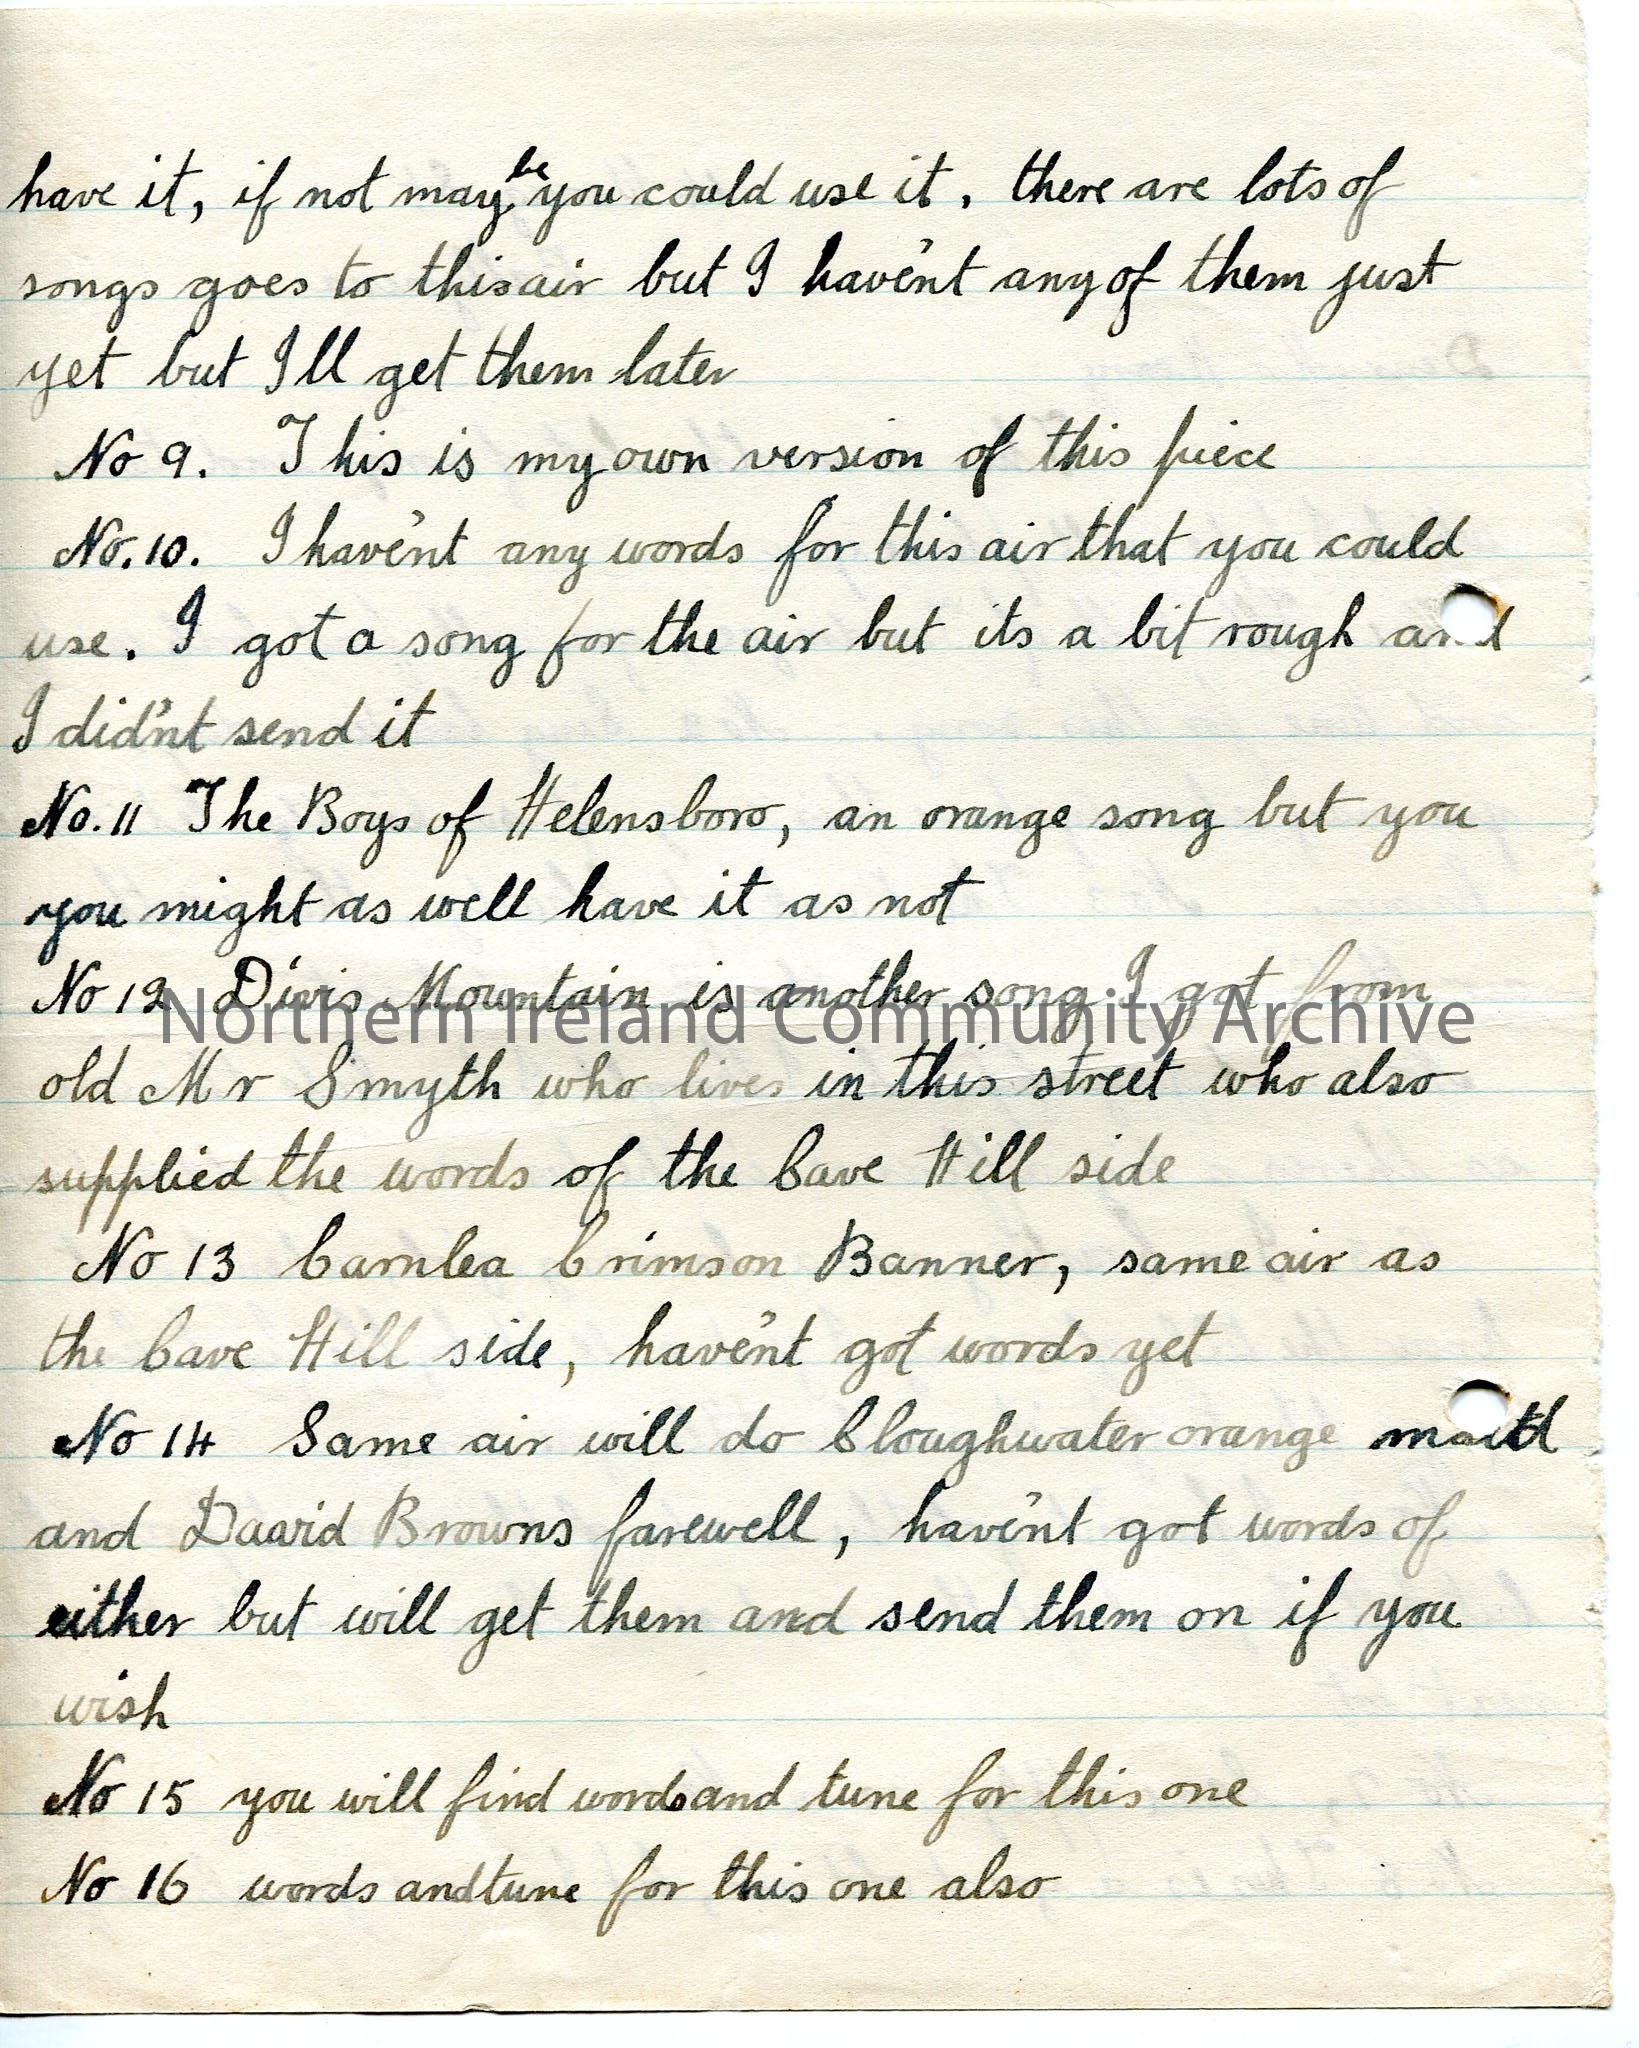 have it, if not may be you could use it. there are lots of
songs goes to this air but I haven't any of them just
yet but I'll get them later
No 9. This is my own version of this piece
No. 10. I haven't any words for this air that you could
use. I got a song for the air but its a bit rough and
I did'nt send it
No. 11 The Boys of Helensboro, an orange song but you
you might as well have it as not
No 12 Divis Mountain is another song I got from
Northern Ireland Community Archive
old Mr Smyth who lives in this street who also
supplied the words of the Cave Hill side
No 13 Carnlea Crimson Banner, same air as
the Cave Hill side, haven't got words yet
No 14 Same air will do Cloughwater orange maid
and David Browns farewell, haven't got words of
either but will get them and send them on if you
wish
No 15 you will find words and tune for this one
No 16 words and tune for this one also